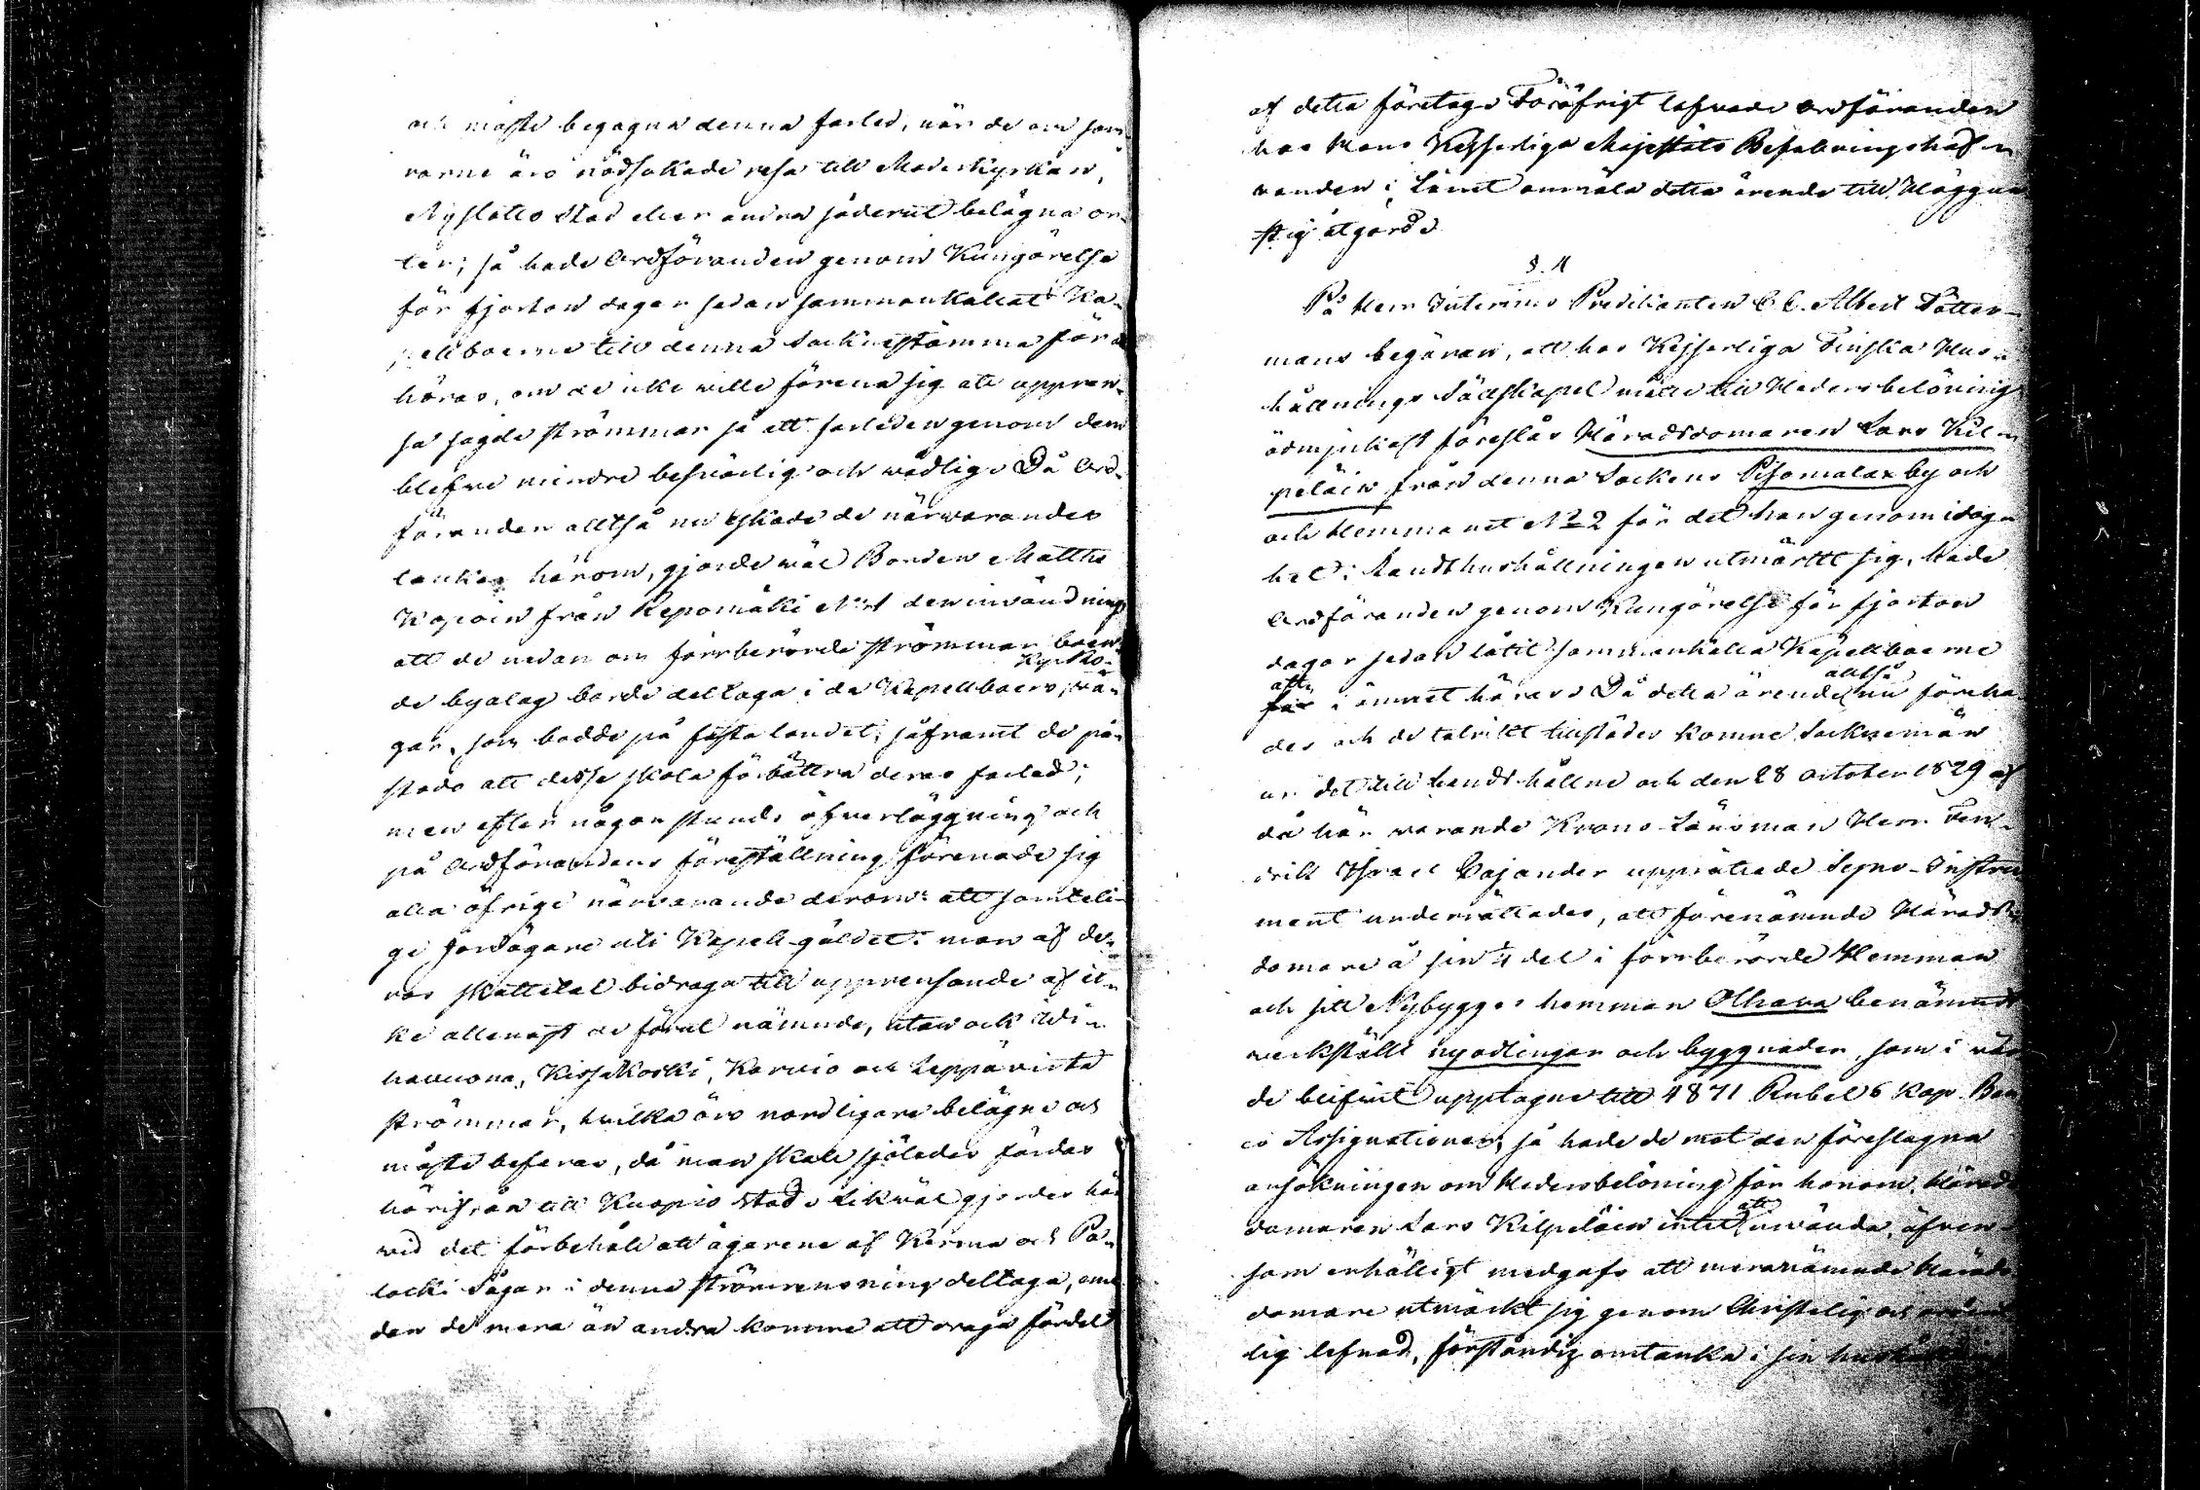 och måste begagna denna farled, när de om som-
rarne äro nödsakade resa till Moderkyrkan,
Nyslotts stad eller andra söderut belägna or-
ter; så hade Ordföranden genom Kungörelse
för fjorton dagar sedan sammankallat Ka-
pellboerne till denna Socknestämma för a
höras, om de icke wille förena sig att uppren-
sa sagde strömmar så att farleden genom dem
blefve mindre besvärlig och wådlig. Då Ord-
föranden alltså nu äskade de närwarandes
tankar härom, gjorde wäl Bonden Matths
Kopoin från Repomäki N:o 1 den inwändning
att de nedan om förrberörde strömmar boen-
de byalag borde deltaga i de Kapellboers, Kyrko-
wä-
gar, som bodde på fasta landet, såframt de på-
stodo att desse skola förbättra deras farled;
men efter någon stunds öfverläggning och
på Ordförandens föreställning förenade sig
alla öfrige närwarande derom: att samteli-
ge Jordägare uti Kapell-gäldet: man af de-
ras skattetal bidraga till upprensande af ic-
ke allenast de förut nämnde, utan ock
Kissakoski, Karvio och Leppävirta
strömmar, hvilka äro nordligare belägne och
måste befaras, då man skall sjöledes färdas
härifrån till Kuopio stad. Likwäl gjordes här
wid det förbehåll att ägarene af Kerma och Pa-
locki Sågar i denna strömrensning deltaga, eme
dan de mera än andra komme att draga fördel
af detta företag. Föröfrigt lofvade Ordföranden
hos Hans Kejserliga Majestäts Befalningshaf-
wanden i Länet anmäla detta ärende till Höggun
stig åtgärd.
§. 4
På Herr Interims Predikanten C. C. Albert Pötter-
mans begäran, att hos Kejserliga Finska Hus-
hållnings Sällskapet måtte till Hedersbelöning
ödmjukast föreslås Häradsdomaren Lars Kil-
peläin från denna Sockens Pisomalax by och
och Hemmanet N:o 2 för det han genom idog-
het i Landthushållningen utmärkt sig, hade
Ordföranden genom Kungörelse för fjorton
dagar sedan låtit sammankalla Kapellboerne
att
för i ämnet höras. Då detta ärende alltså nu föreha-
des och de talrikt tillstädes komne Socknemän
ur det till hands hållne och den 28 October 1829 af
då här warande Krono-Länsman Herr
Israel Cajander upprättade Syns-Instru
ment underrättades, att förenämnde Härads-
domare å sin 1/4 del i förrberörde Hemman
och sitt Nybygges hemman Olhava benämndt
werkställt nyodlingar och byggnader, som i vär
de blifwit upptagne till 4871 Rubel 6 Kop. Ban
co Assignationer; så hade de mot den föreslagna
ansökningen om Hedersbelöning för honom, Härads
domaren Lars Kilpeläin intet att inwända, äfven-
som enhälligt medgafs att merenämnde Härads
domare utmärkt sig genom Christelig och
lig lefnad, förståndig omtanka i sin